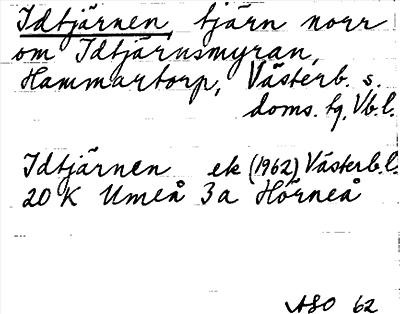 Idtjärnen, tjärn norr
om Idtjärnsmyran,
Hammartorp, Västerb. s.
doms. tg, Vb. l.
Idtjärnen ek (1962) Västerb. l.
20 K Umeå 3a Hörneå
ASO 62